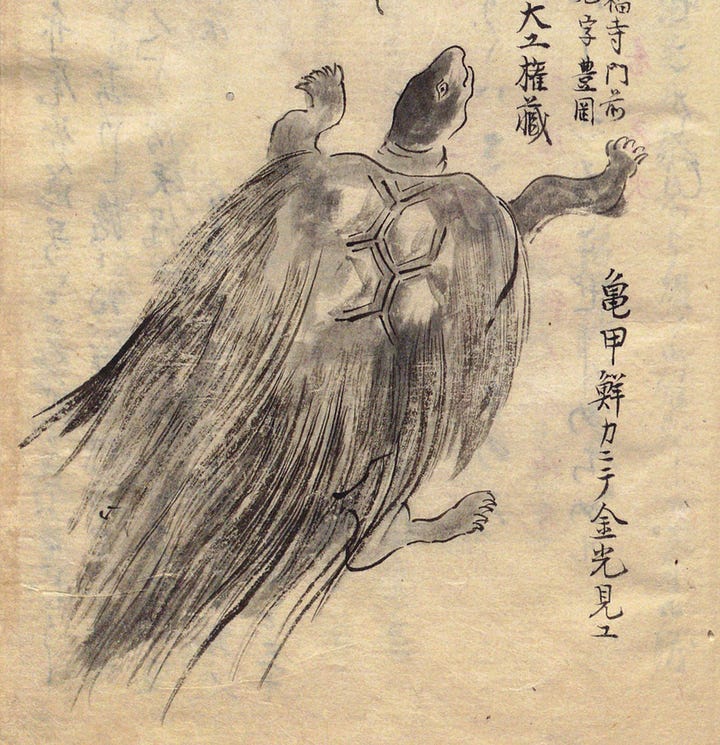 福寺門前
字豊岡
大工權藏
亀甲鮮カニテ金光見エ